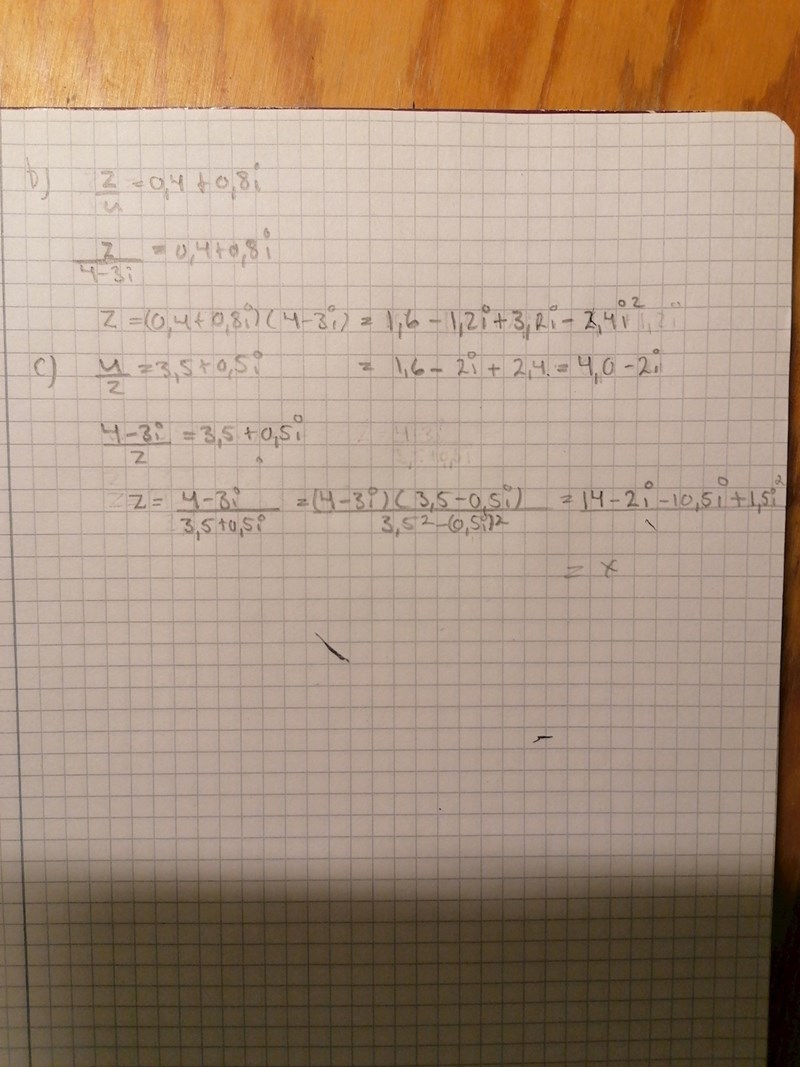 b) z/u = 0,4 + 0,8i
z/(4-3i) = 0,4+0,8i
z = (0,4+0,8i)(4-3i) = 1,6 - 1,2i + 3,2i - 2,4i²
= 1,6 - 2i + 2,4 = 4,0 - 2i
c) u/z = 3,5 + 0,5i
(4-3i)/z = 3,5 + 0,5i
z = (4-3i)/(3,5+0,5i) = (4-3i)(3,5-0,5i)/(3,5²-(0,5i)²) = 14 - 2i - 10,5i + 1,5i²
= x